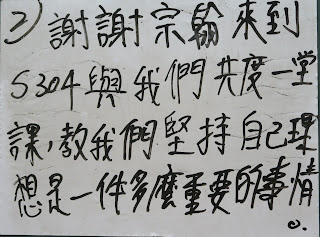 2)謝謝宗翰來到
S304與我們共度一堂
課,教我們堅持自己理
想是一件多麼重要的事情
。